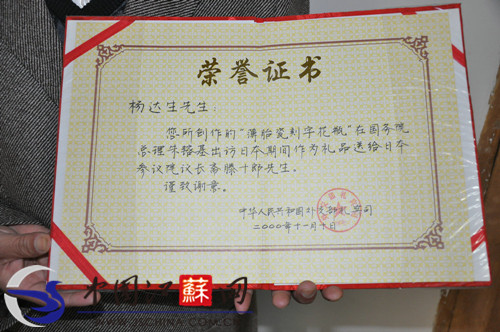 荣誉证书
杨达生先生：
您所创作的"薄胎瓷刻字花瓶"在国务院
总理朱镕基出访日本期间作为礼品送给日本
参议院议长斋滕十郎先生。
谨致谢意。
中华人民共和国外交部礼宾司
二000年十一月十日
中国江蘇网